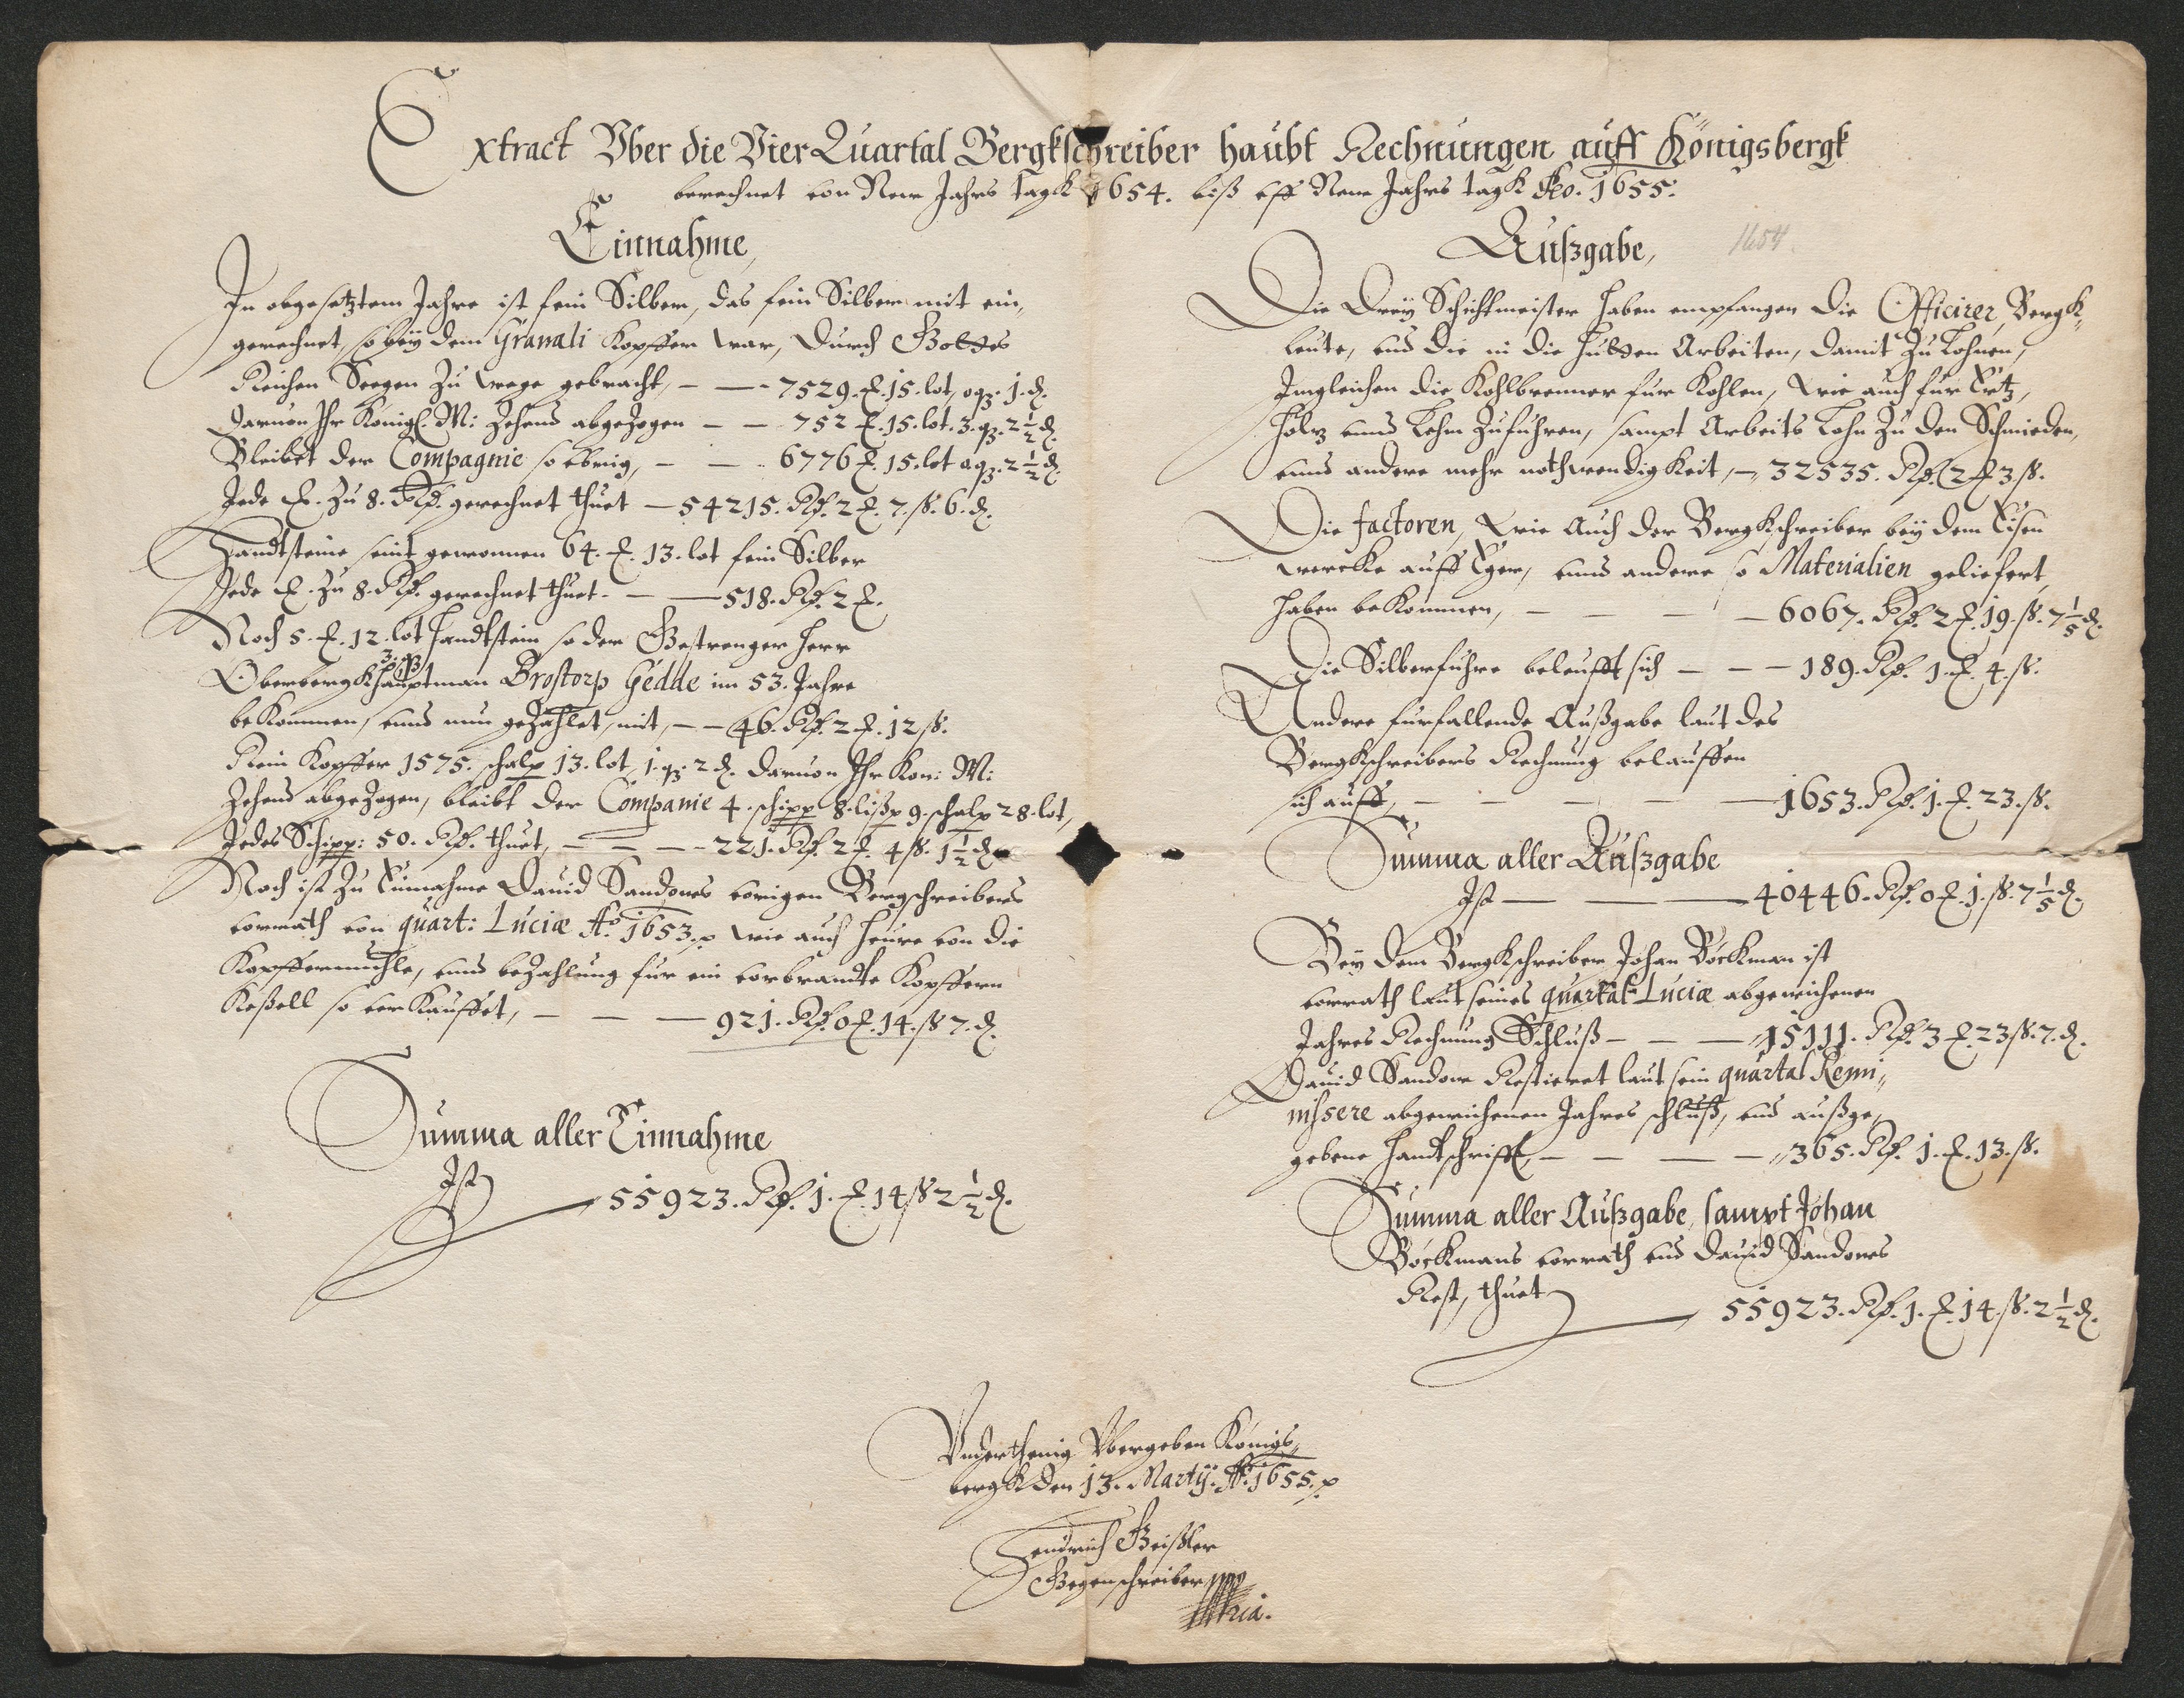 Extract Vber die Vier Quartal Bergkschreiber haubt Rechnungen auff Königsbergk
berechnet von New Jahrs tagk 1654. biß vff New Jahrs tagk Ao. 1655.
Einnahme,
In obgesetztem Jahre ist fein Silber, das fein Silber mit ein„
gerechnet, so beÿ dem Granali Kopffer war, durch Gottes
Reichen Seegen zu wege gebracht, — — 7529. ℔. 15. lot, 0 q̃z. 1. ₰.
Daruon Ihr Königl. M: Zehend abgezogen — — 752 ℔. 15. lot. 3. q̃z. 2½ ₰.
Bleibet der Compagnie so vbrig, — — 6776 ℔. 15. lot 0 q̃z. 2½ ₰.
Jede ℔. zu 8. Rß. gerechnet thuet — 54215. Rß. 2 ℔. 7. ß. 6. ₰.
Handtsteine seint gewonnen 64. ℔. 13. lot fein Silber
Jede ℔. zu 8. Rß. gerechnet thuet — — 518. Rß. 2 ℔.
Noch 5. ℔. 12. lot 3. q̃z Handtstein so der Gestrenger Herr
Oberbergkhauptman Brostorp Gedde im 53. Jahre
bekommen, vnd nun gezahlet, mit, — — 46. Rß. 2 ℔. 12 ß.
Rein Kopffer 1575. schalp 13. lot, 1. q̃z. 2 ₰. daruon Ihr Kon: M:
Zehend abgezogen, bleibt der Companie 4. schipp 8. lißp 9. schalp 28. lot,
Jedes Schipp: 50. Rß. thuet, — — — 221. Rß. 2 ℔. 4 ß. 1½ ₰.
Noch ist zu Einnahme Dauid Sandows vorigen Bergschreibers
vorrath von quart: Luciæ Ao. 1653. p wie auch heure von die
Kopffermühle, vnd bezahlung für ein vorbrandte Kopffern
Keßell so verkauffet, — — — 921. Rß. 0 ℔. 14. ß 7. ₰.
Summa aller Einnahme
Ist — 55923. Rß. 1. ℔. 14 ß 2½ ₰.
Außgabe,
1654.
Die Dreÿ Schichtmeister haben empfangen die Officirer, Bergk„
leute, vnd die in die Hutten Arbeiten, damit zu lohnen,
Imgleichen die Kohlbrenner für Kohlen, wie auch für Ertz,
Holtz vnnd Lehm zuführen, sampt Arbeits Lohn zu den Schmieden,
vnnd andere mehr nothwendigkeit, — 32535. Rß. 2 ℔ 3. ß.
Die factoren, wie Auch der Bergkschreiber beÿ dem Eisen
wercke auff Eger, vnnd andere so Materialien geliefert,
haben bekommen, — — — — 6067. Rß. 2 ℔. 19. ß. 7⅕ ₰.
Die Silberführe beleufft sich — — — 189. Rß. 1. ℔. 4. ß.
Andere fürfallende Außgabe laut des
Bergkschreibers Rechnung belauffen
sich auff, — — — — — 1653. Rß. 1. ℔. 23. ß.
Summa aller Außgabe
Ist — — — 40446. Rß. 0 ℔. 1. ß. 7⅕ ₰.
Beÿ dem Bergkschreiber Johan Böckman ist
vorrath laut seines quartal Luciæ abgewichenen
Jahres Rechnung Schluß — — — 15111. Rß. 3 ℔. 23 ß. 7. ₰.
Dauid Sandow Restieret laut sein quartal Remi„
nissere abgewichenen Jahres schluß, vnd außge„
gebene Handtschrifft, — — — — 365. Rß. 1. ℔. 13. ß.
Summa aller Außgabe, sampt Johan
Böckmans vorrath vnd Dauid Sandows
Rest, thuet — 55923. Rß. 1. ℔. 14. ß. 2½ ₰.
Vnderthenig Vbergeben Königs„
bergk den 13. Martÿ. Ao. 1655. p
Hendrich Geißler
Gegenschreiber